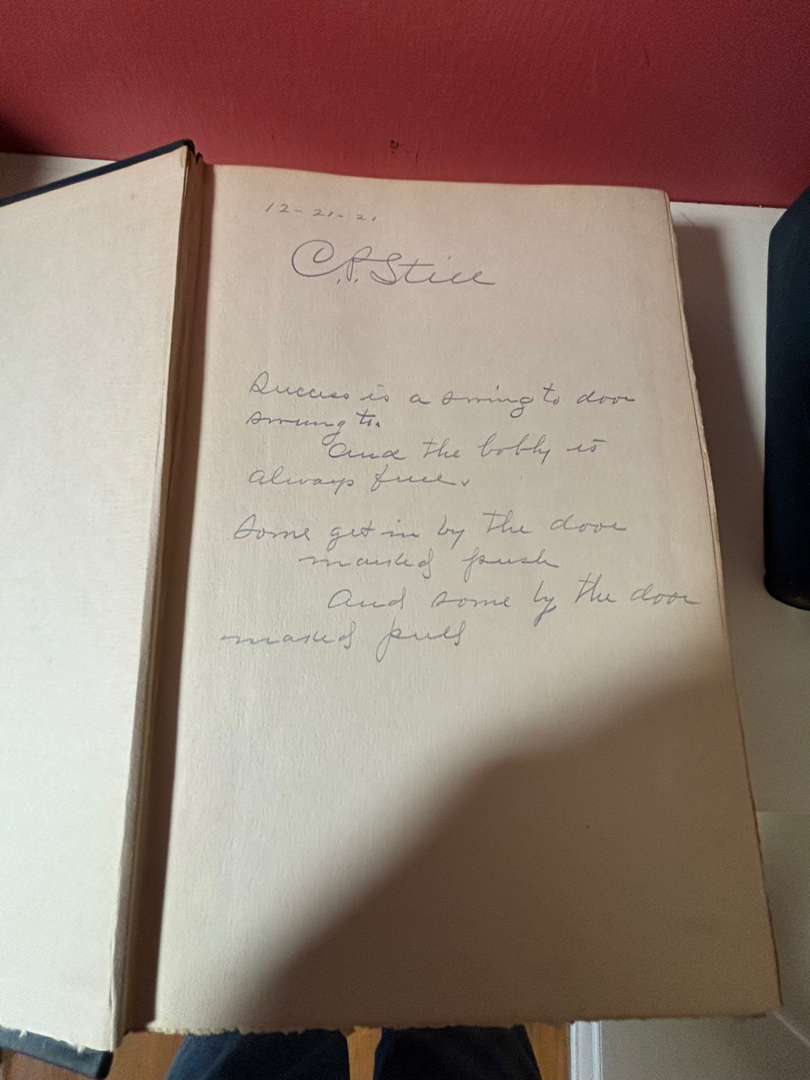 12-21-21
C.P. Still
Success is a swing to door
swung to.
And the lobby is
always full.
Some get in by the door
marked push
And some by the door
marked pull